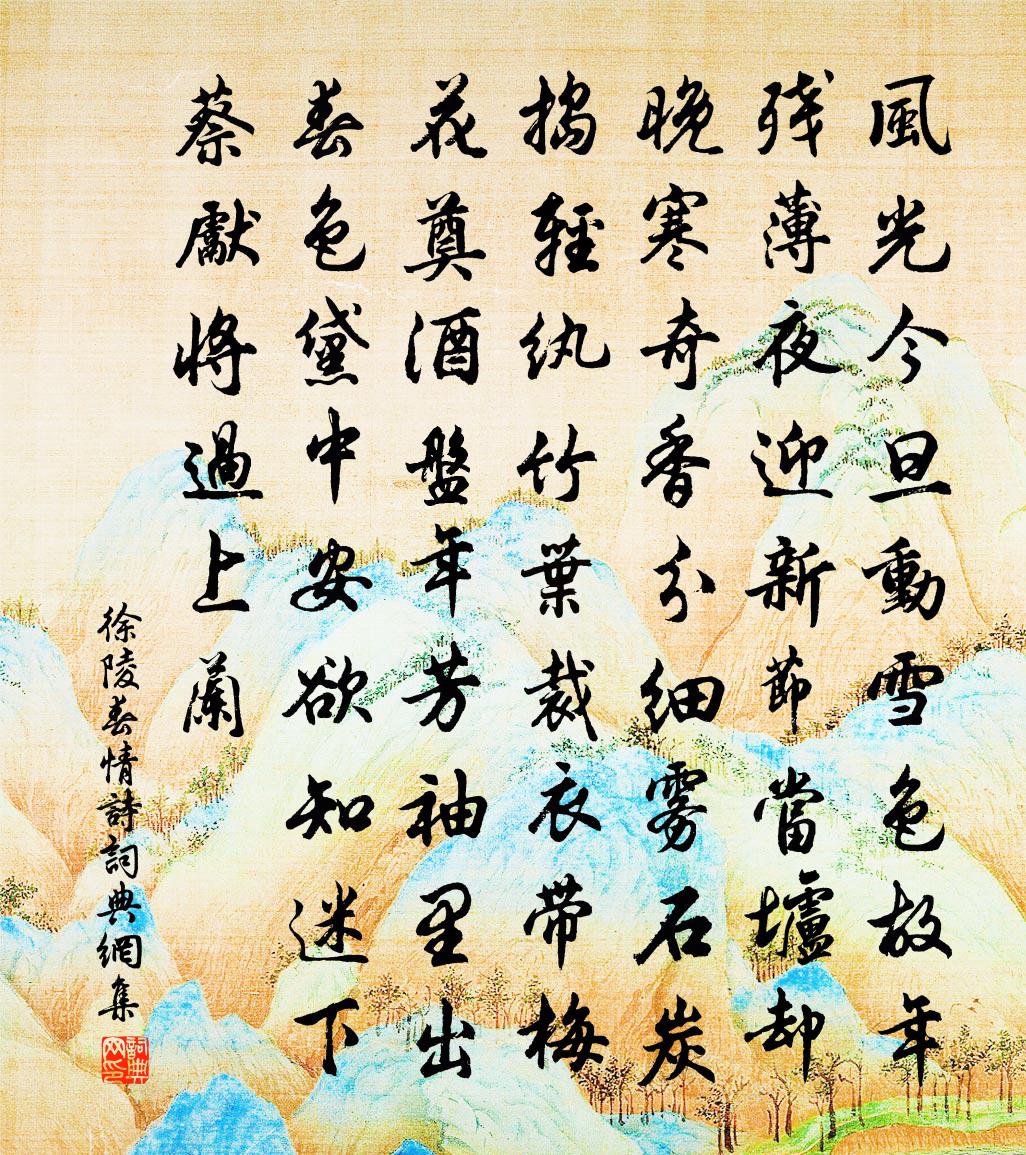 風光今旦動雪色故年
残薄夜迎新節當壚却
晚寒奇香分細雾石炭
搗輕紈竹葉裁衣帶梅
花奠酒盤年芳袖里出
春色黛中安欲知迷下
蔡獻將過上蘭
徐陵春情詩詞典網集
詞典网印